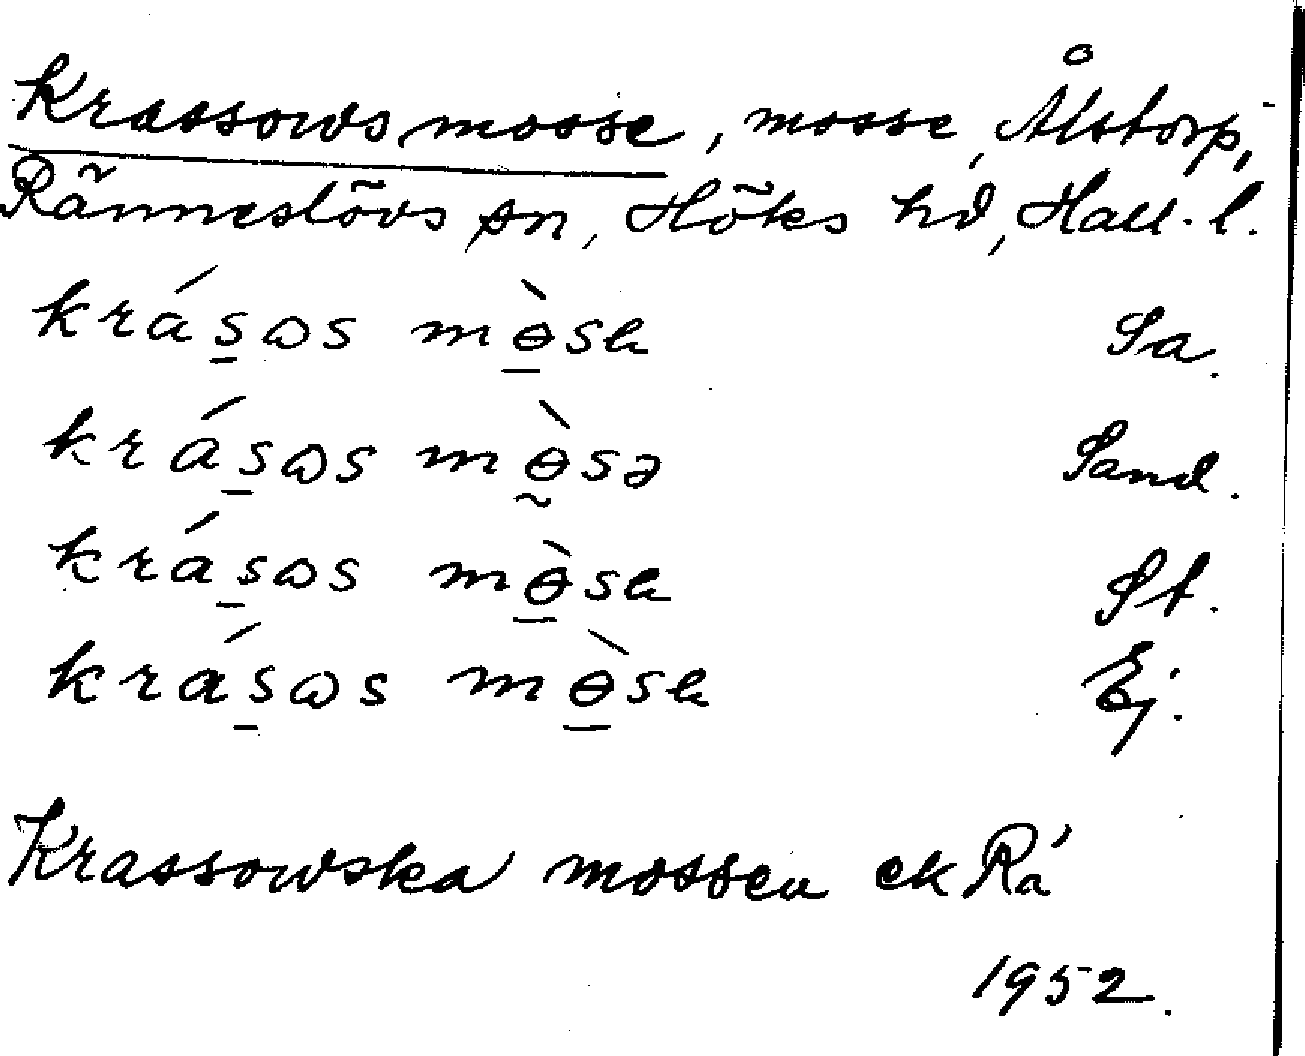 Krassows mosse, mosse, Ålstorp,
Ränneslövs sn, Höks hd, Hall. l.
krás̱ɷs mɵ̱̀sɐ Sa.
krás̱ɷs mɵ̰̀sə Sand.
krás̱ɷs mɵ̱̀sɐ St.
krás̱ɷs mɵ̱̀sɐ Ej.
Krassowska mossen ek Rä
1952.